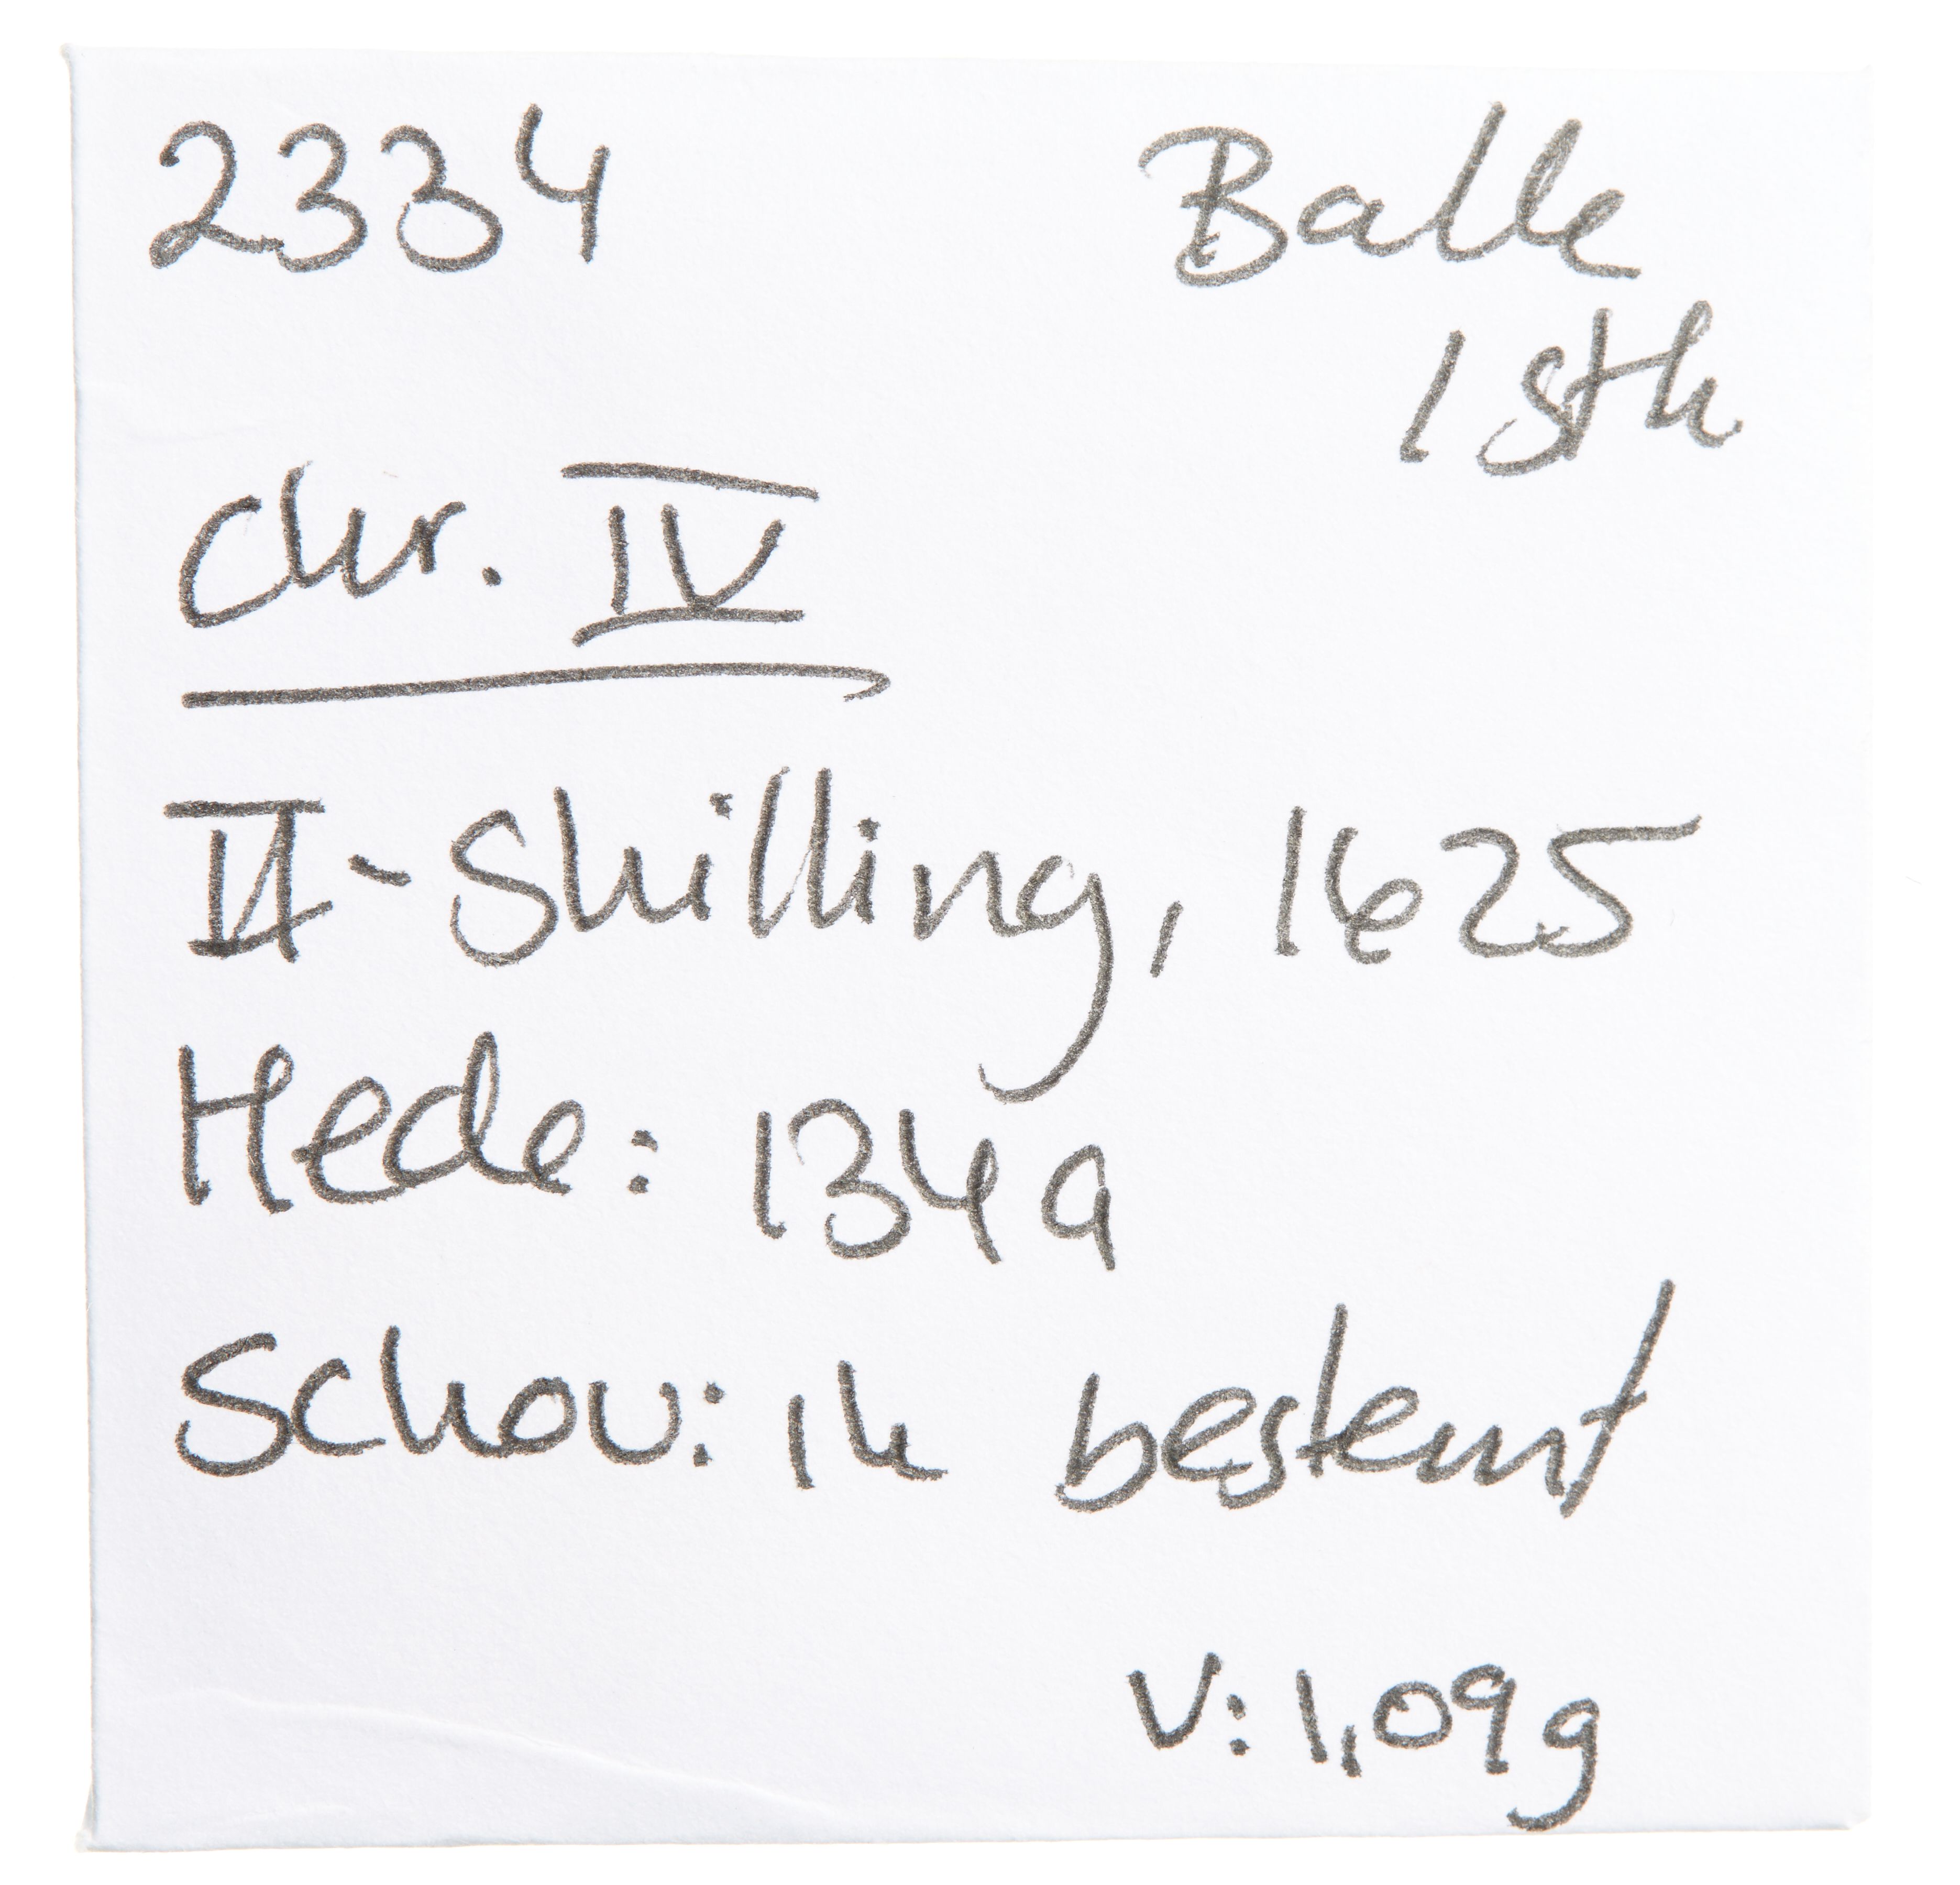 2334 Balle
1 stk
Chr. IV
II-Skilling, 1625
Hede: 134a
Schou: ik bestemt
V: 1,09g